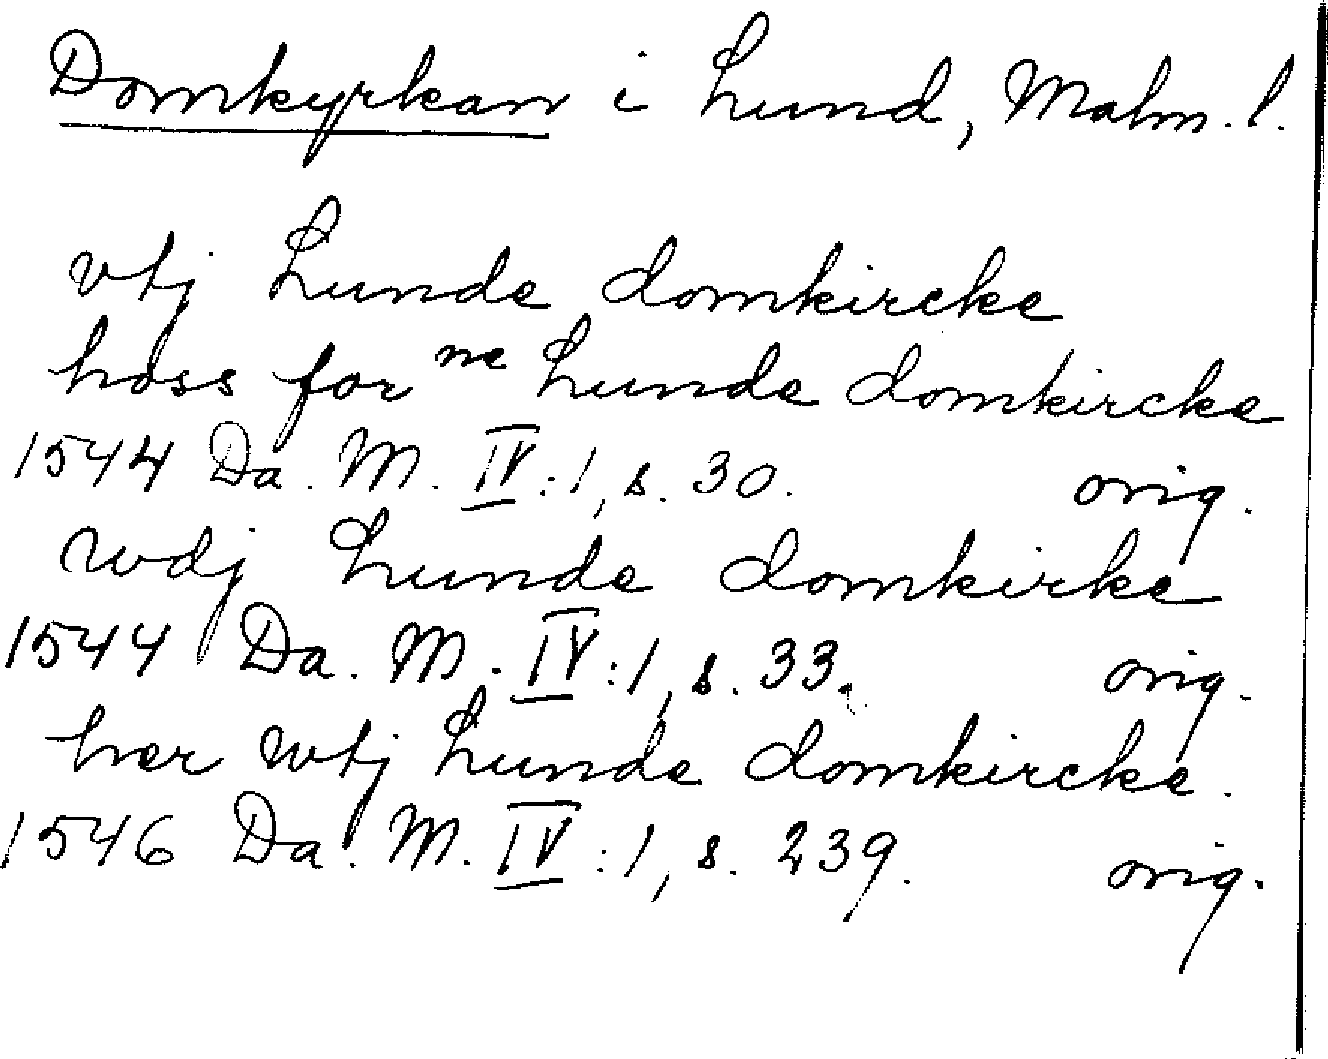 Domkyrkan i Lund, Malm. l.
vtj Lunde domkircke
hoss for ne Lunde domkircke
1544 Da. M. IV:1, s. 30. orig.
wdj Lunde domkirke
1544 Da. M. IV:1, s. 33. orig.
her wtj Lunde domkircke.
1546 Da. M. IV:1, s. 239. orig.